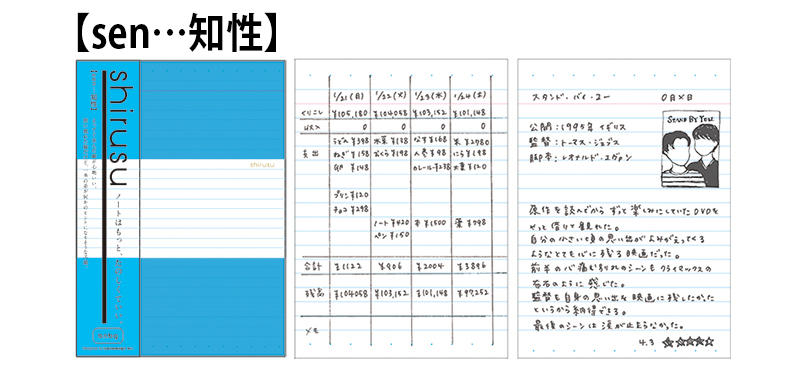 【sen…知性】
shirusu
【sen…知性】
ノートはもっと、
shirusu
1/21(日) 1/22(火) 1/23(水) 1/24(土)
くりこし ¥105,180 ¥104058 ¥103,152 ¥101,148
収入 0 0 0 0
支出 うどん ¥398 水菜 ¥138 なす ¥168 米 ¥2980
ねぎ ¥158 おくら ¥198 人参 ¥98 にら ¥198
¥148 カレールー ¥238 大葉 ¥120
プリン ¥120
チョコ ¥298
ノート ¥420 本 ¥1500 薬 ¥798
ペン ¥150
合計 ¥1122 ¥906 ¥2004 ¥3896
残高 ¥104058 ¥103,152 ¥101,148 ¥97,252
メモ
スタンド・バイ・ユー 〇日×日
公開：1995年 イギリス
監督：トーマス・ジョブス
脚本：レオナルド・エヴァン
STAND BY YOU
原作を読んでから ずっと楽しみにしていたDVDを
やっと借りて見れた。
自分の小さい頃の思い出がよみがえってくる
ようなとても心に残る映画だった。
前半の心痛む別れのシーンもクライマックスの
布石のように感じた。
監督も自身の思い出を映画に残したかった
というから納得できる。
最後のシーンは涙が止まらなかった。
4.3 ★★★★☆